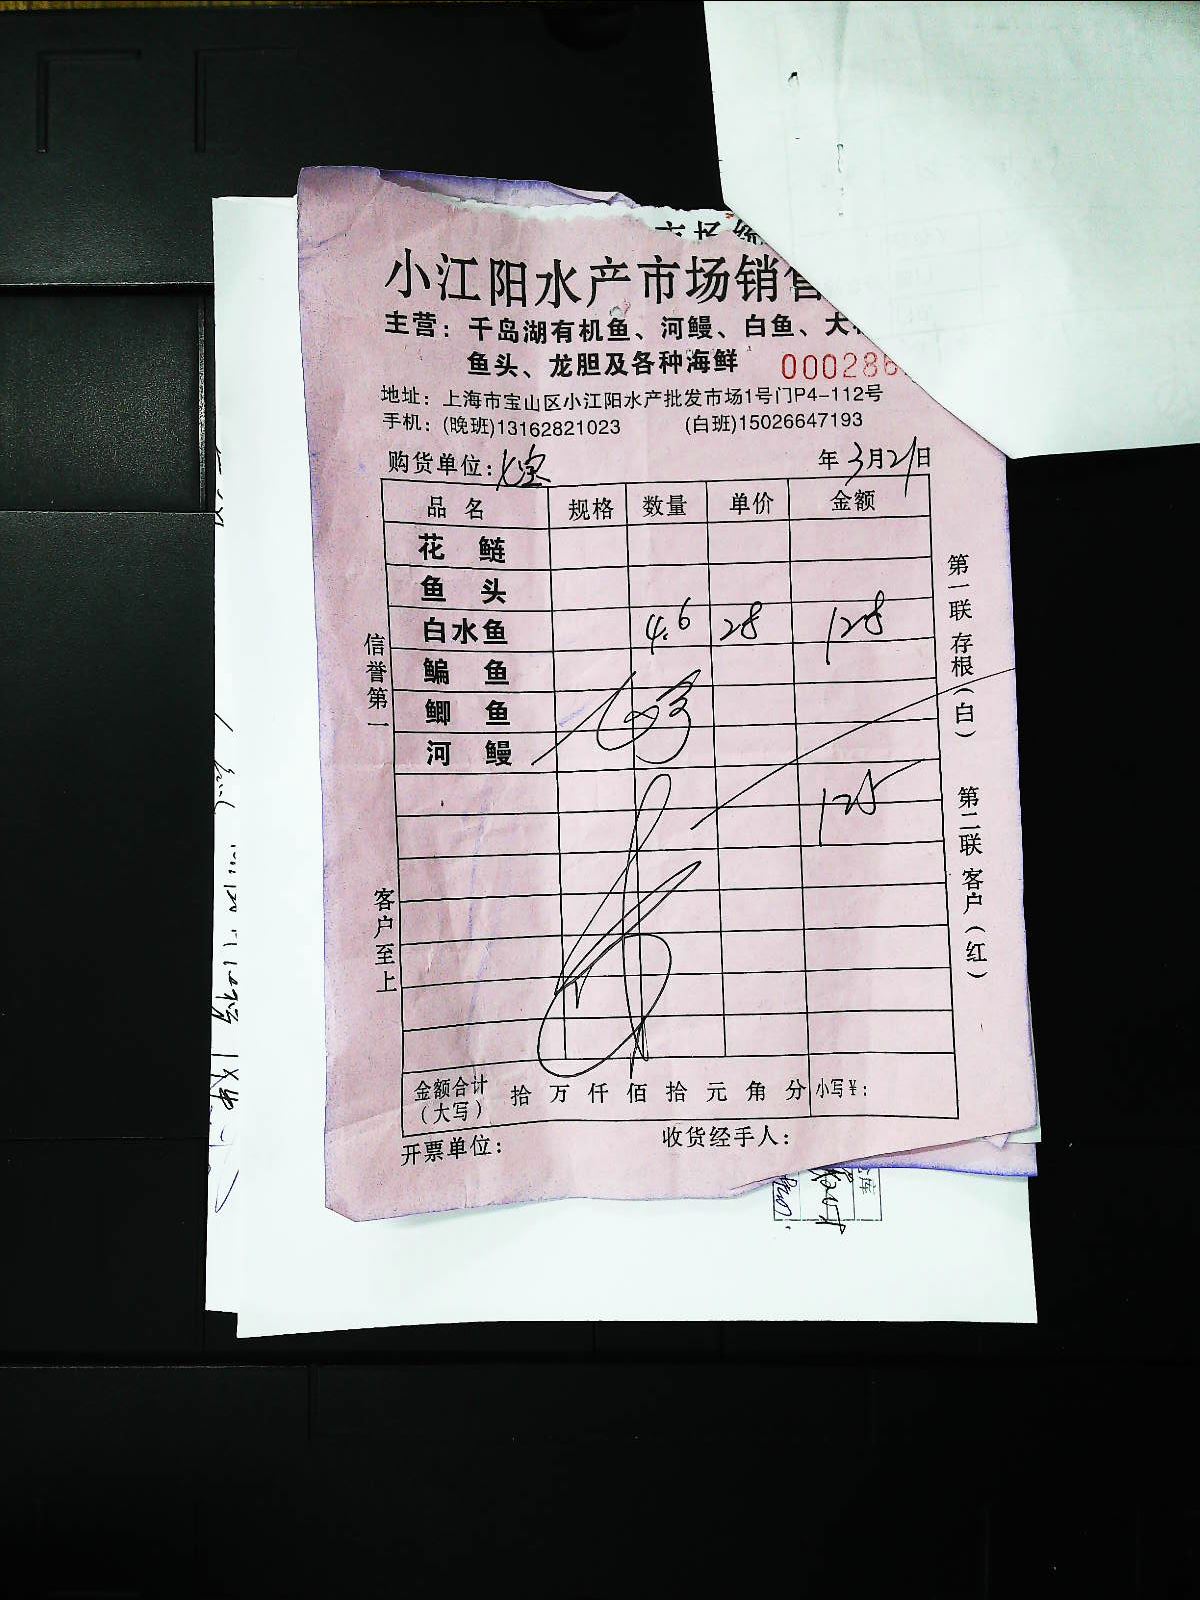 小江阳水产市场销售
主营：千岛湖有机鱼、河鳗、白鱼、大
鱼头、龙胆及各种海鲜 000286
地址：上海市宝山区小江阳水产批发市场1号门P4-112号
手机：(晚班)13162821023 (白班)15026647193
购货单位： 年 3月21日
品 名 规格 数量 单价 金额
花 鲢
鱼 头
白水鱼 4.6 28 128
鳊 鱼
鲫 鱼
河 鳗
128
金额合计（大写） 拾 万 仟 佰 拾 元 角 分 小写¥：
开票单位： 收货经手人：
信誉第一
客户至上
第一联 存根（白）
第二联 客户（红）